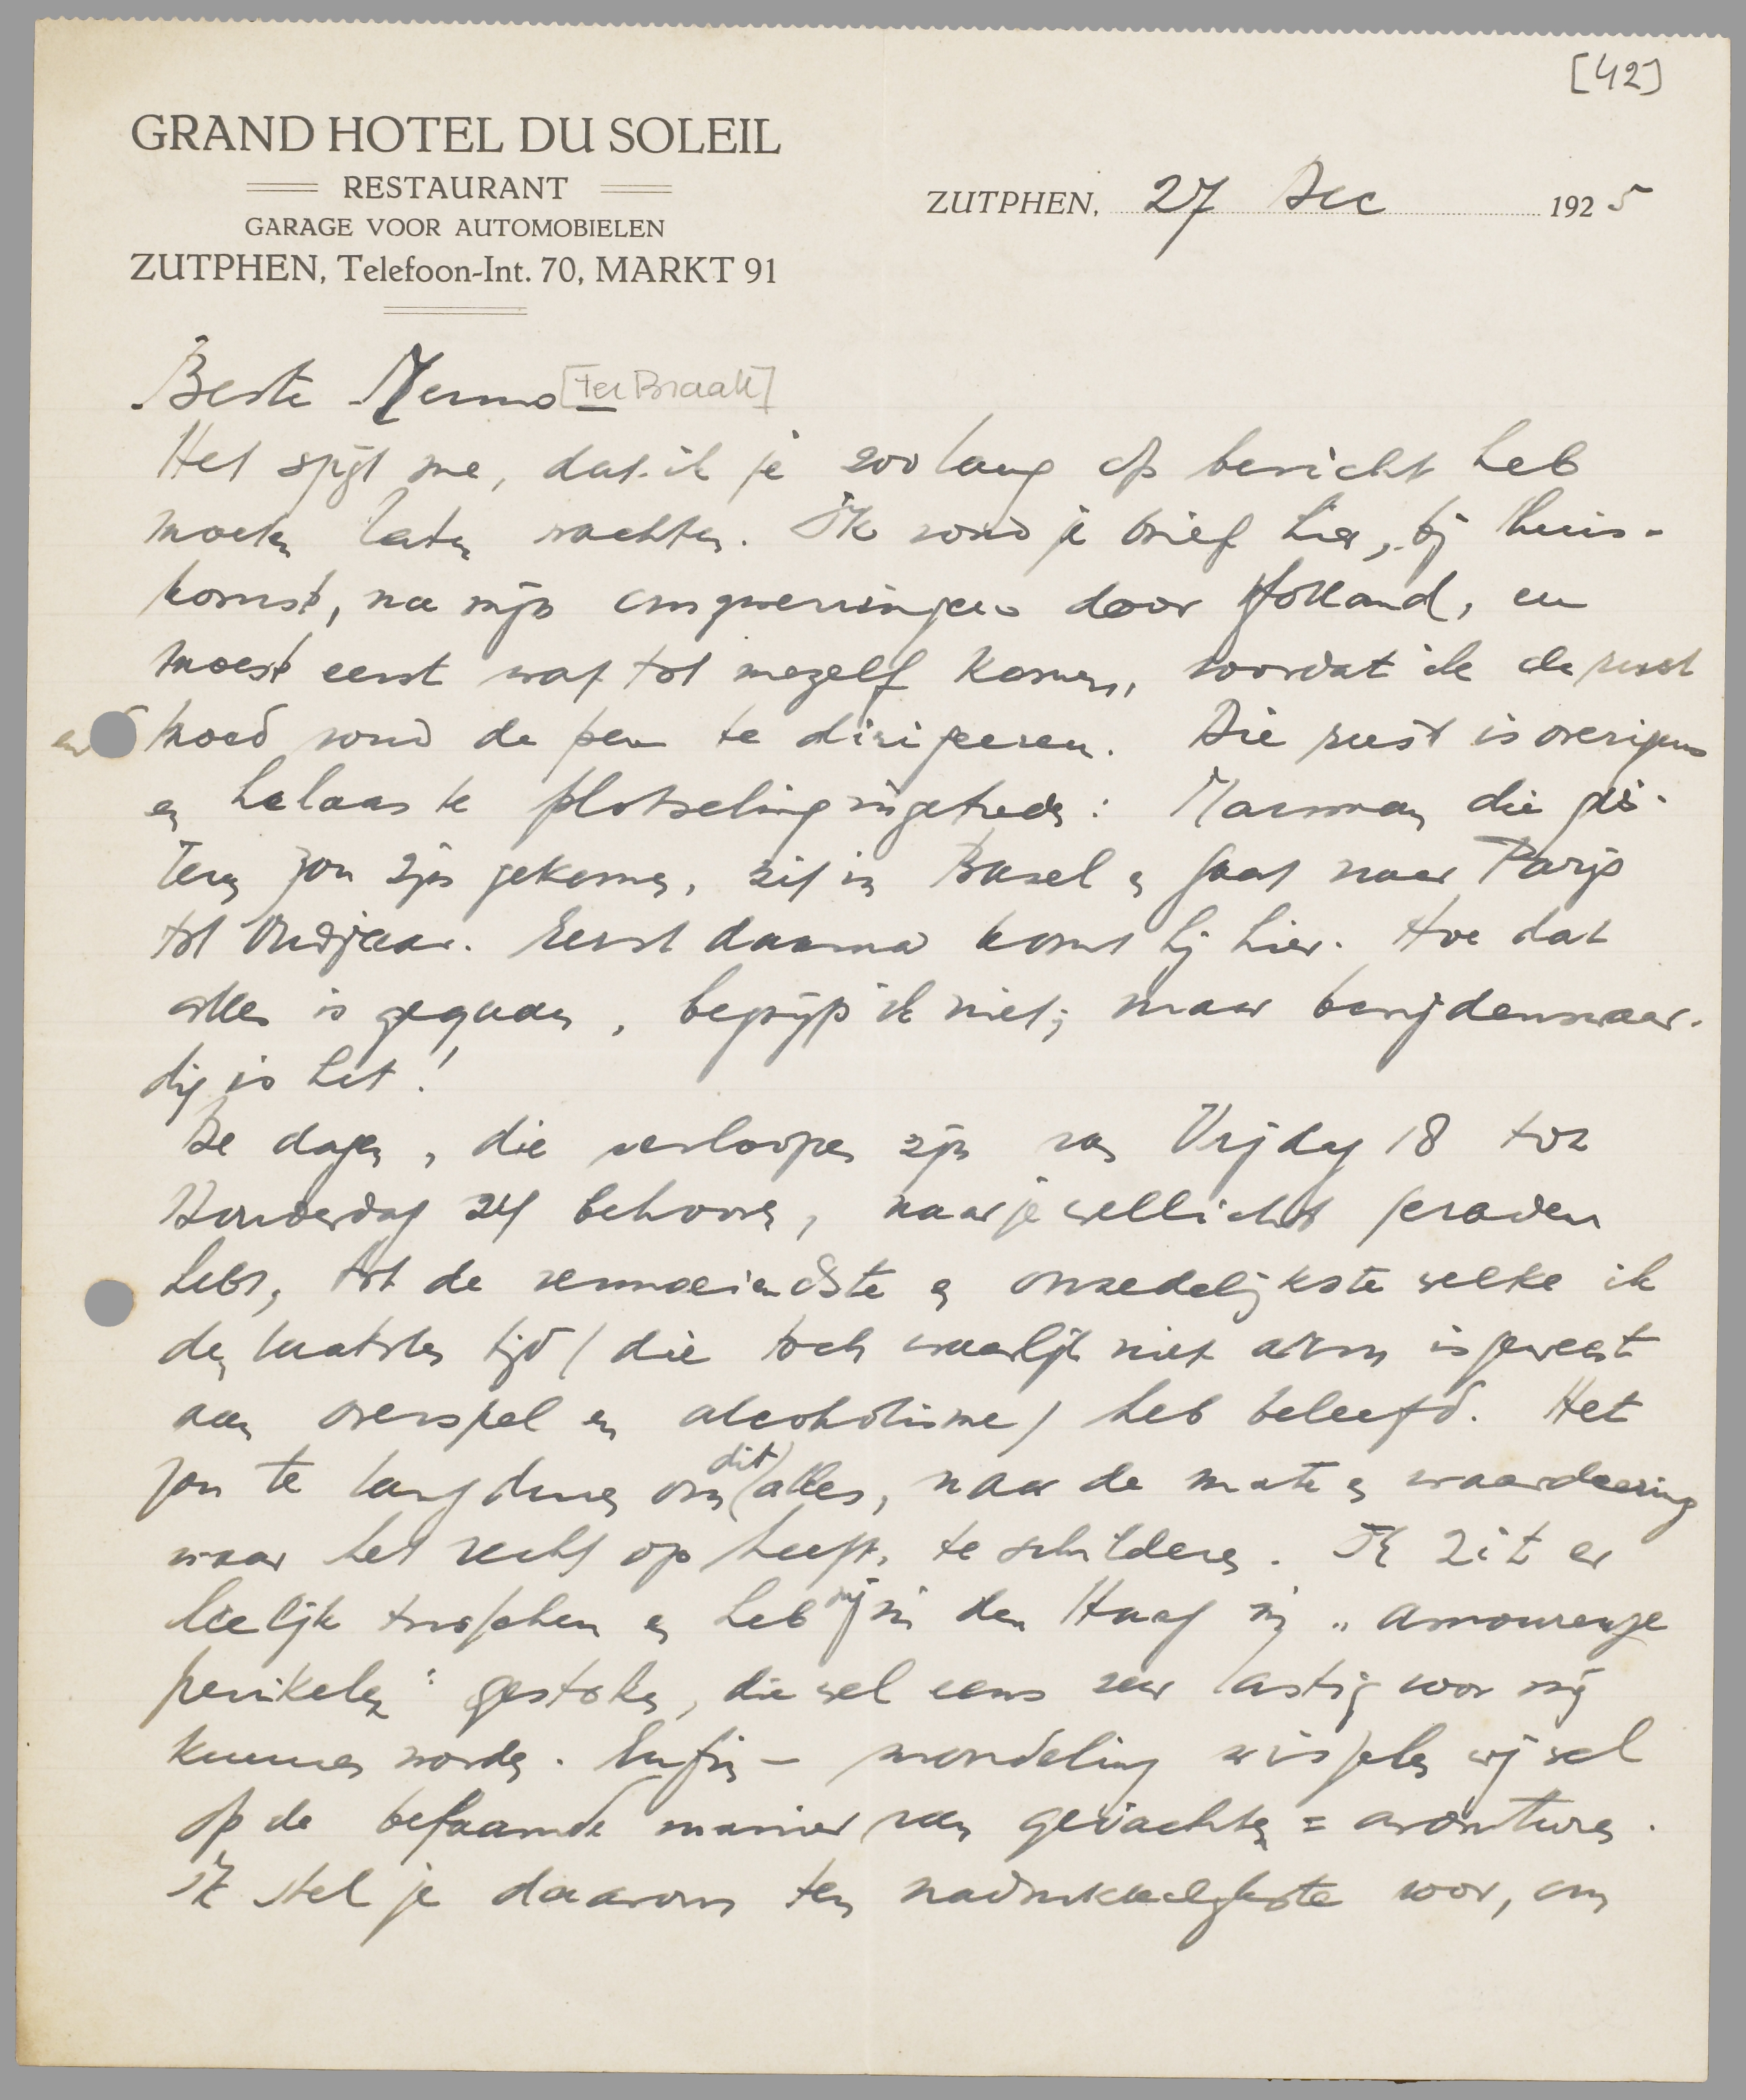 [42]
GRAND HOTEL DU SOLEIL
RESTAURANT
GARAGE VOOR AUTOMOBIELEN
ZUTPHEN, Telefoon-Int. 70, MARKT 91
ZUTPHEN, 27 Dec 1925
Beste Menno [ter Braak]
Het spijt me, dat ik je zoo lang op bericht heb
moeten laten wachten. Ik vond je brief hier, bij thuis-
komst, na mijn omzwervingen door Holland, en
moest eerst wat tot mezelf komen, voordat ik de rust
en moed vond de pen te dirigeeren. Die rust is overigens
en helaas te plotseling ingetreden: Marsman, die gis-
teren zou zijn gekomen, zit in Basel en gaat naar Parijs
tot Oudjaar. Eerst daarna komt hij hier. Hoe dat
alles is gegaan, begrijp ik niet; maar benijdenswaar-
dig is het!
De dagen, die verloopen zijn van Vrijdag 18 tot
Donderdag 24 behooren, naar je wellicht geraden
hebt, tot de vermoeiendste en onzedelijkste welke ik
den laatsten tijd (die toch waarlijk niet arm is geweest
aan overspel en alcoholisme) heb beleefd. Het
zou te lang duren om dit alles, naar de mate en waardeering
waar het recht op heeft, te schilderen. Ik zit er
leelijk tusschen en heb mij in den Haag in „amoureuze
perikelen" gestoken, die wel eens zeer lastig voor mij
kunnen worden. Enfin – mondeling wisselen wij wel
op de befaamde manier van gedachten = avonturen.
Ik stel je daarom ten nadrukkelijkste voor, om